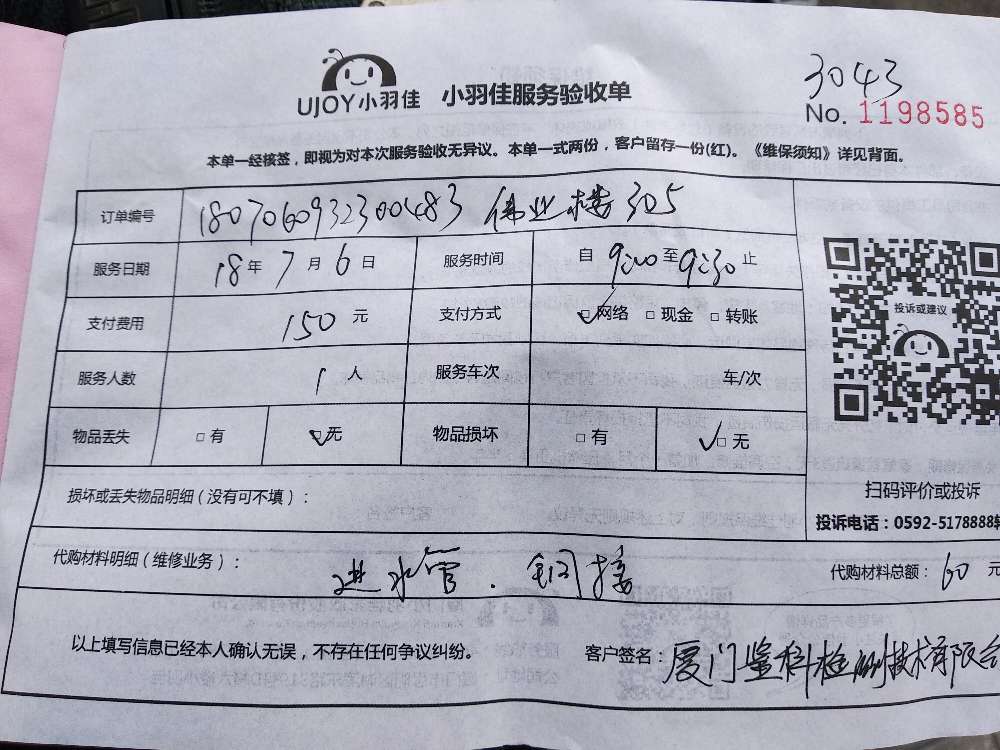 3043
UJOY小羽佳 小羽佳服务验收单
No. 1198585
本单一经核签，即视为对本次服务验收无异议。本单一式两份，客户留存一份(红)。《维保须知》详见背面。
订单编号 1807060932300483 伟业楼305
服务日期 18年7月6日 服务时间 自9:00至9:30止
支付费用 150元 支付方式 □网络 □现金 □转账
投诉或建议
服务人数 1人 服务车次 车/次
物品丢失 □有 □无 物品损坏 □有 □无
损坏或丢失物品明细（没有可不填）：
扫码评价或投诉
投诉电话：0592-5178888
代购材料明细（维修业务）： 进水管. 铜接
代购材料总额：60元
以上填写信息已经本人确认无误，不存在任何争议纠纷。
客户签名：厦门鉴科检测技术有限公